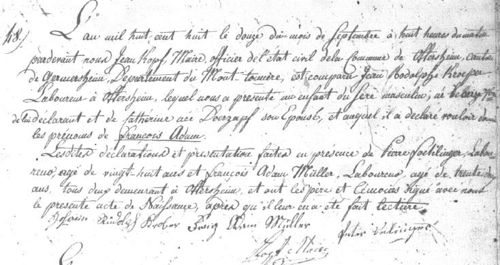 48/ L'an mil huit cent huit le douze du mois de Septembre à huit heures du matin
pardevant nous Jean Hopf, Maire, officier de l'état civil de la Commune de Ottersheim, canton
de Germersheim, Departement du Mont-tonnerre, est comparu Jean Rodolphe Kroper
Laboureur à Ottersheim, lequel nous a présenté un enfant du sexe masculin, né
declarant et de Catherine née son Epouse, et auquel il a déclaré vouloir donner
les prénoms de François Adam.
Lesdites déclarations et présentation faites en présence de Pierre
âgé de vingt huit ans et François Adam Müller, Laboureur, agé de trente
ans, tous deux demeurant à Ottersheim, et ont les père et témoins signé avec nous
le présente acte de Naissance, après qu'il leur en a été fait lecture.
Müller
Hopf Maire